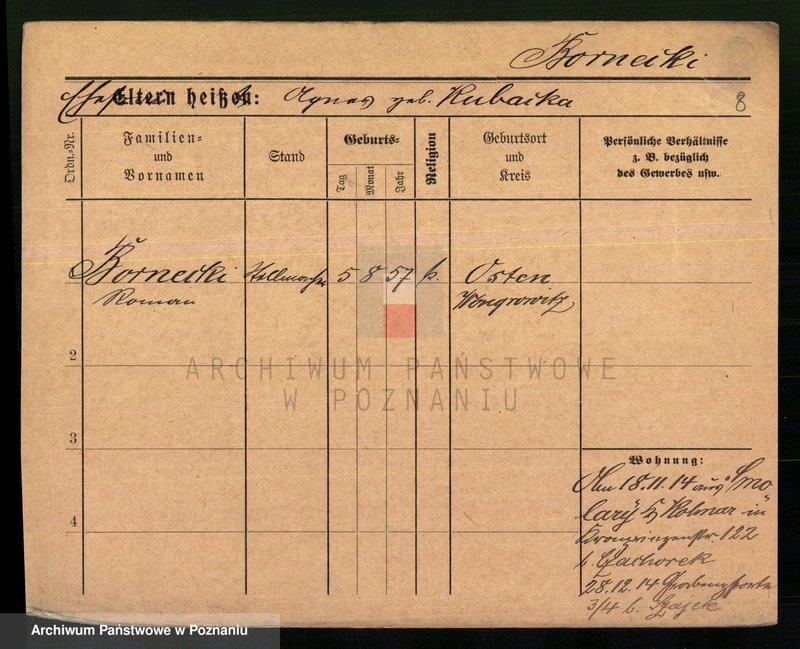 Bornecki
Eltern heißen: Agnes geb. Kubacka
8
Ordn.-Nr.
Familien- und Vornamen
Stand
Geburts-
Tag
Monat
Jahr
Religion
Geburtsort und Kreis
Persönliche Verhältnisse z. B. bezüglich des Gewerbes usw.
Bornecki 5 8 57 k. Osten
Roman Wongrowitz
2
ARCHIWUM PAŃSTWOWE
W POZNANIU
3
4
Wohnung:
Am 18.11.14 aus Smo
lary Kr Kolmar in
Kronprinzenstr. 122
b.
28.12.14
3/4 b.
Archiwum Państwowe w Poznaniu